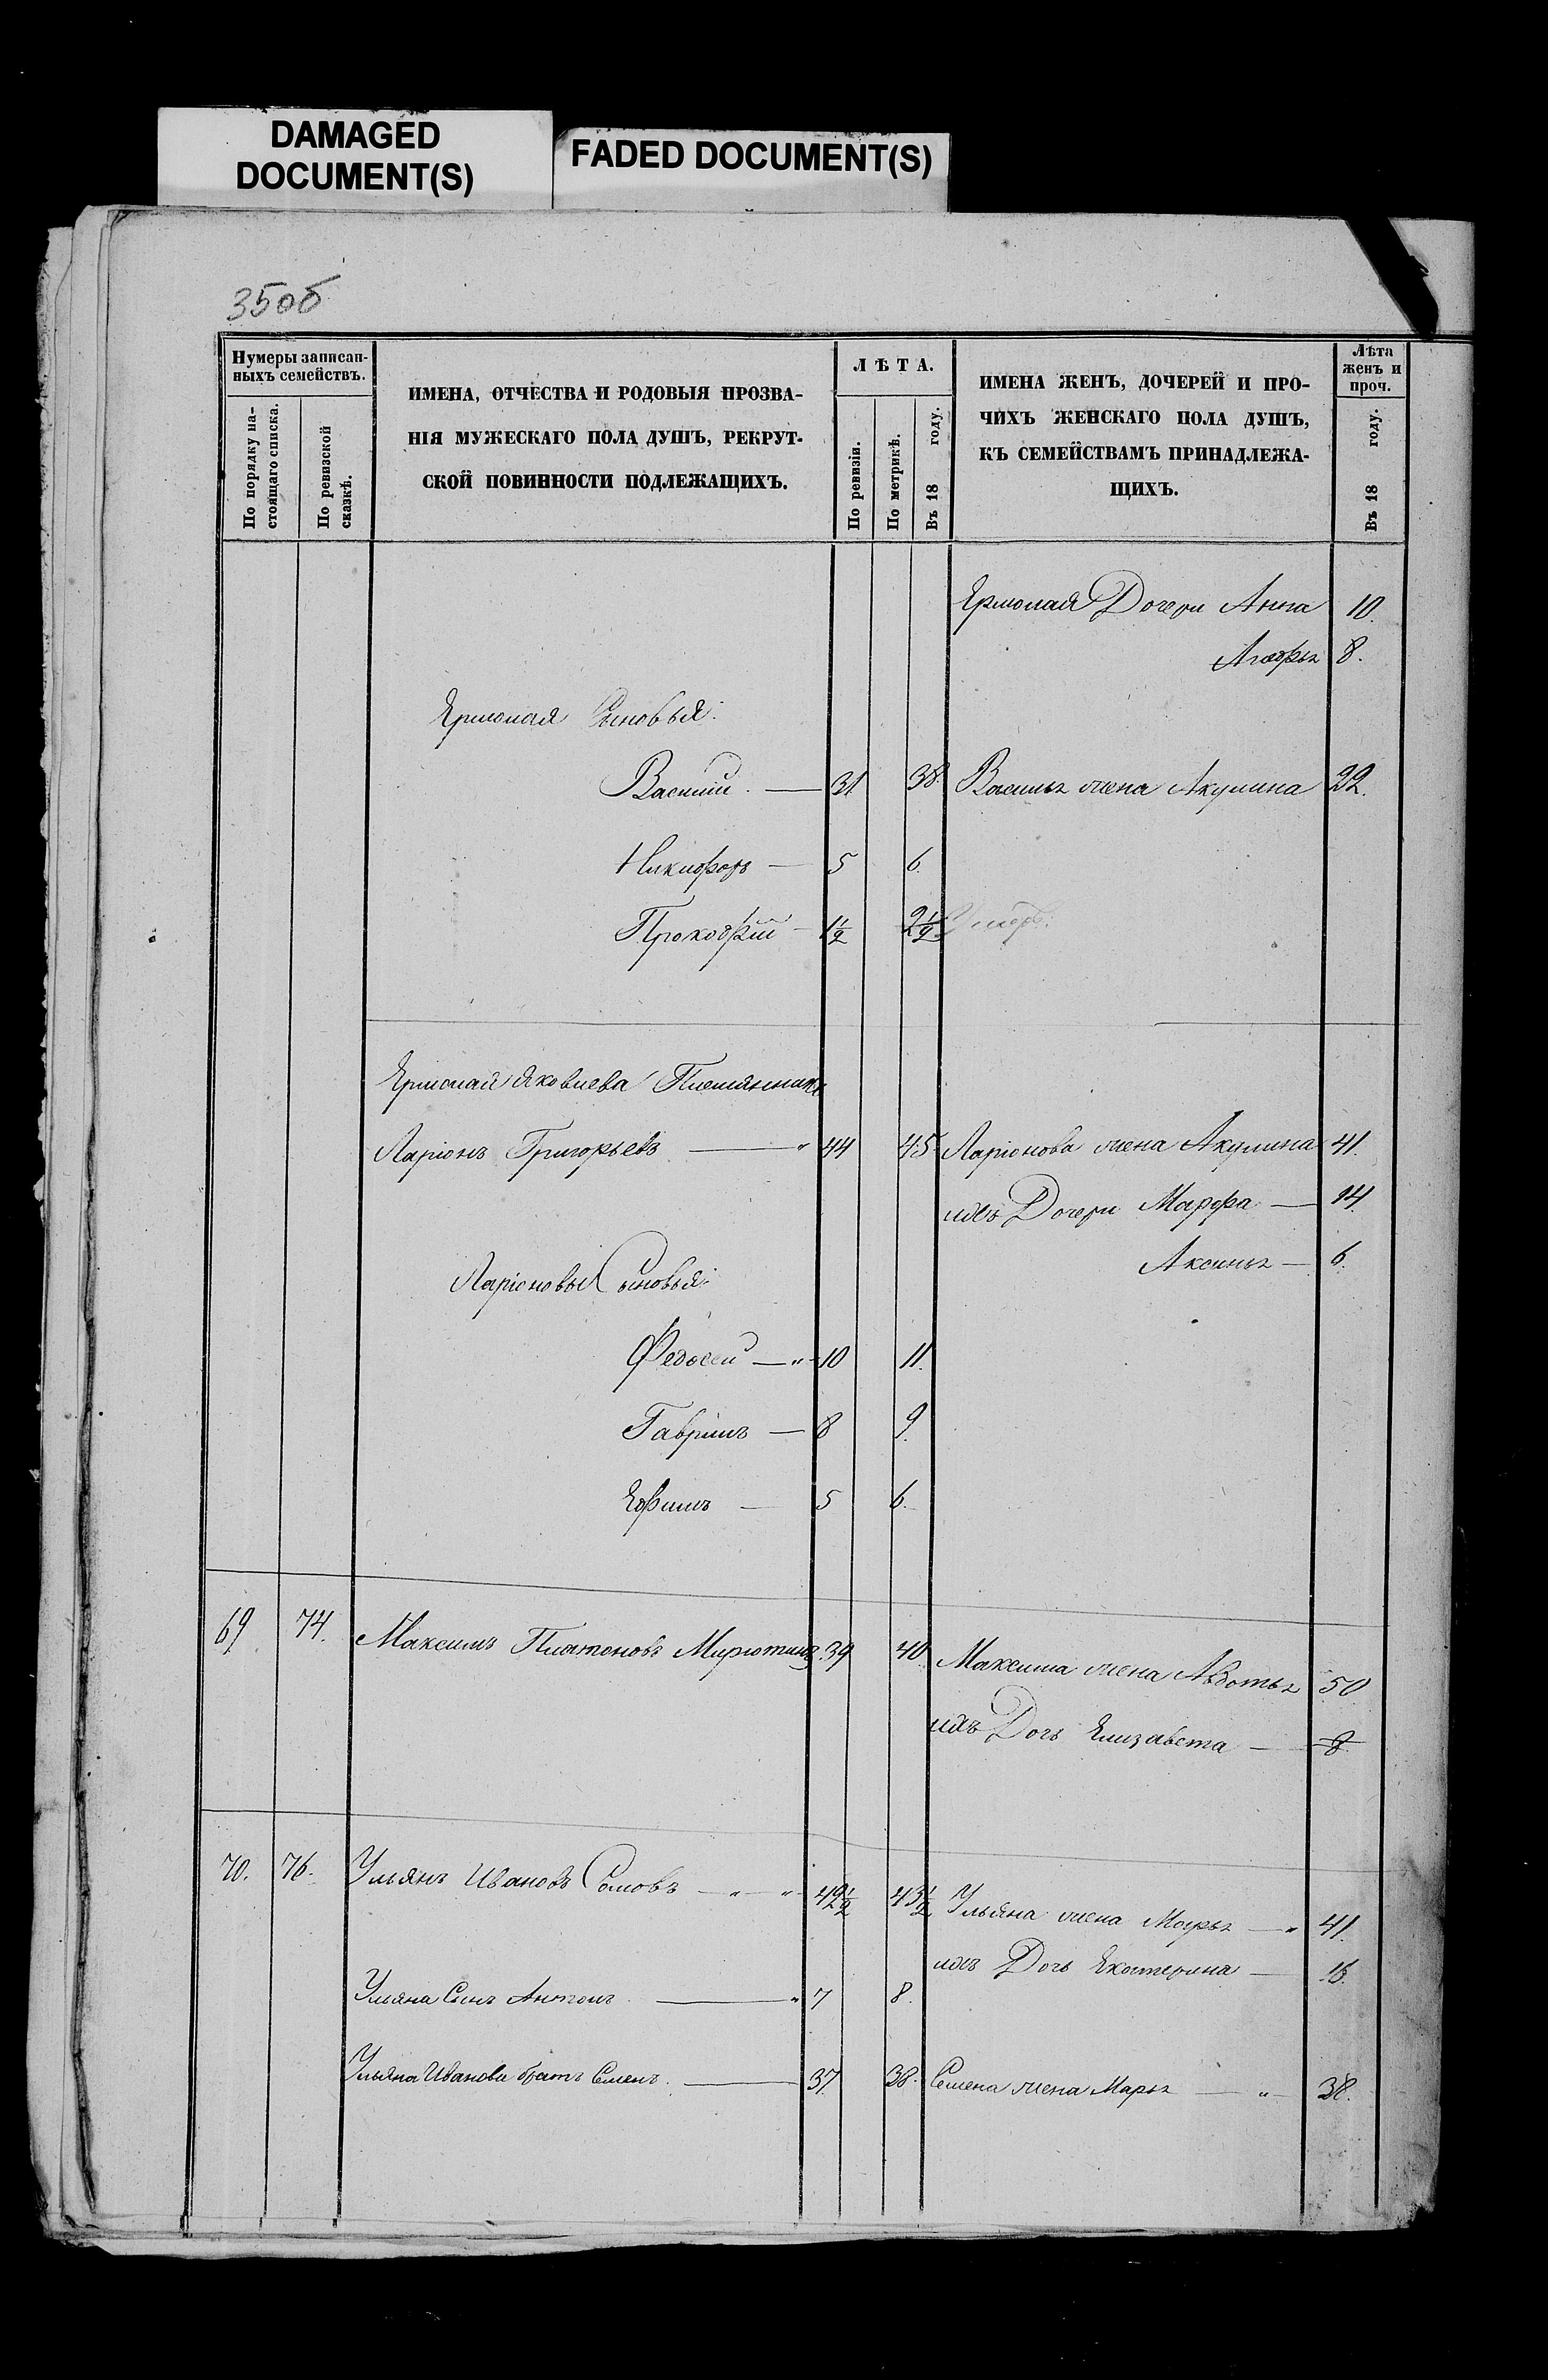 DAMAGED
DOCUMENT(S)
FADED DOCUMENT(S)
35об
Нумеры записан-
ныхъ семействъ.
По порядку на-
стоящаго списка.
По ревизской
сказкѣ.
ИМЕНА, ОТЧЕСТВА И РОДОВЫЯ ПРОЗВА-
НІЯ МУЖЕСКАГО ПОЛА ДУШЪ, РЕКРУТ-
СКОЙ ПОВИННОСТИ ПОДЛЕЖАЩИХЪ.
ЛѢТА.
По ревизіи.
По метрикѣ.
Въ 18 году.
ИМЕНА ЖЕНЪ, ДОЧЕРЕЙ И ПРО-
ЧИХЪ ЖЕНСКАГО ПОЛА ДУШЪ,
КЪ СЕМЕЙСТВАМЪ ПРИНАДЛЕЖА-
ЩИХЪ.
Лѣта
женъ и
проч.
Въ 18 году.
Ермолая Дочери Анна 10.
8.
Ермолая Сыновья:
Василій — 31 38. Василья жена Акулина 22.
Никифоръ — 5 6.
Прокофій — 1½ 2½ Умеръ.
Ермолая Яковлева Племянникъ
Ларіонъ Григорьевъ — 44 45 Ларіонова жена Акулина 41.
ихъ Дочери Марфа — 14.
Аксинья — 6.
Ларіоновы Сыновья:
Федосей — 10 11.
Гаврилъ — 8 9.
Ефимъ — 5 6.
69. 74. Максимъ Платоновъ 39 40. Максима жена Авдотья 50
ихъ Дочь Елизавета — 8
70. 76. Ульянъ Ивановъ Сомовъ — 42½ 43½ Ульяна жена Марья — 41.
ихъ Дочь Екатерина — 16.
Ульяна Сынъ Антонъ — 7 8.
Ульяна Иванова братъ Семенъ. — 37. 38. Семена жена Марья — 38.